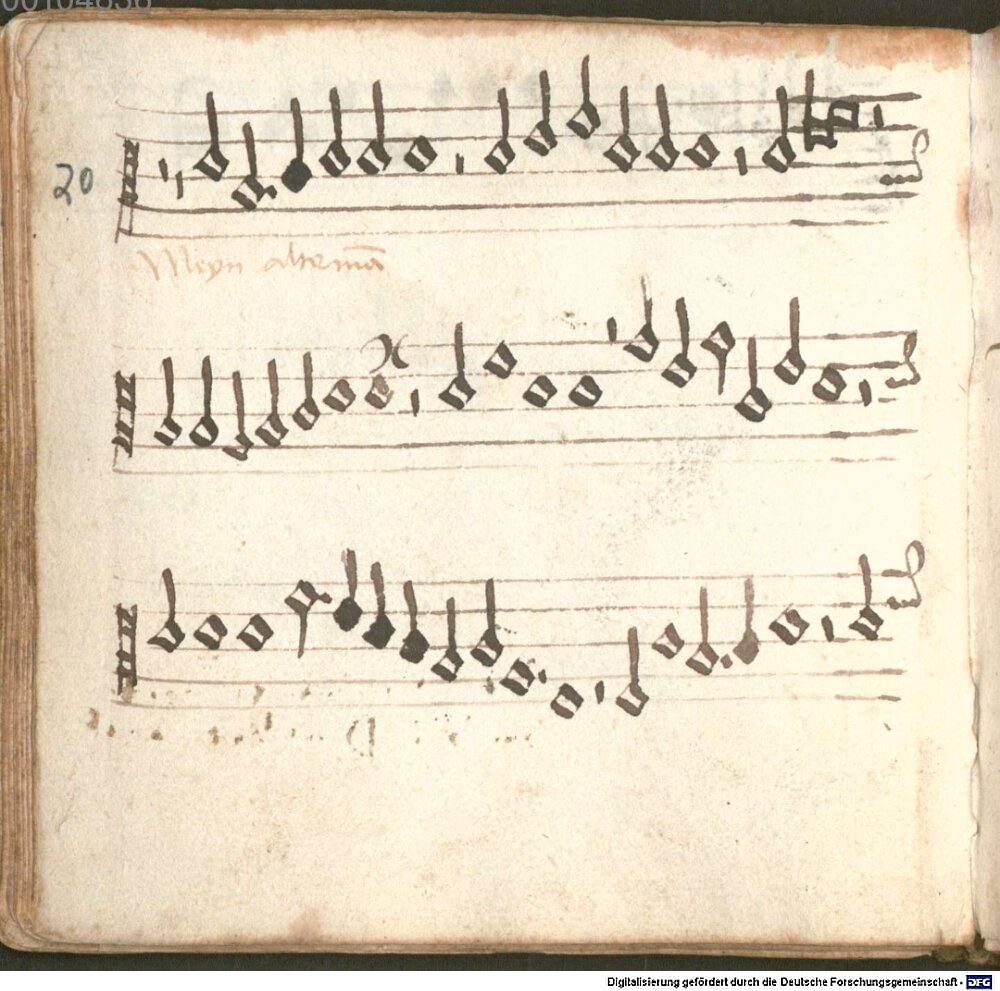 00104638
20
Meyn alterma͞
Digitalisierung gefördert durch die Deutsche Forschungsgemeinschaft - DFG